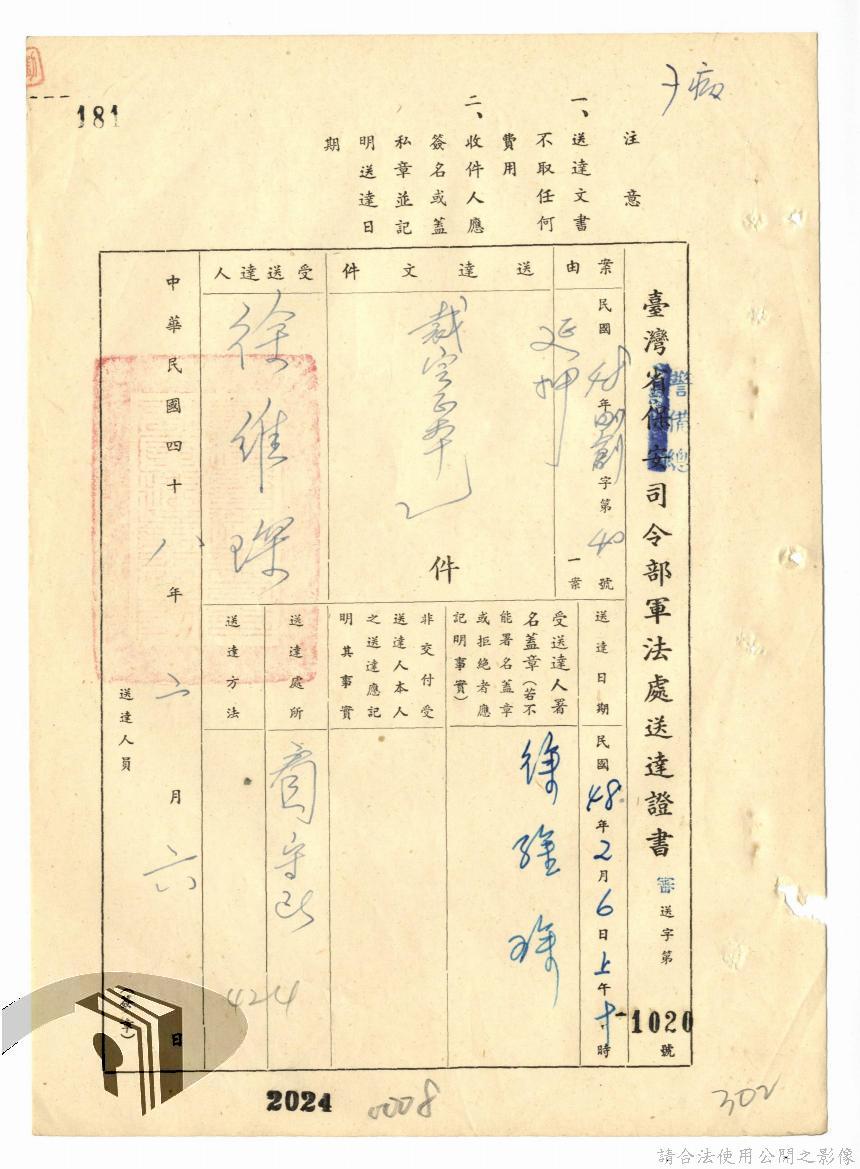 181
注意
一、送達文書
不取任何
費用
二、收件人應
簽名或蓋
私章並記
明送達日
期
臺灣省保安司令部軍法處送達證書
警備總
審送字第1020號
案由
民國48年字第40號
一案
延押
送達文件
裁定正本乙
件
受送達人
徐維琛
送達日期
民國48年2月6日上午十時
受送達人署
名蓋章(若不
能署名蓋章
或拒絕者應
記明事實)
徐維琛
非交付受
送達人本人
之送達應記
明其事實
送達處所
看守所
送達方法
424
中華民國四十八年二月六日
送達人員
(簽章)
2024
0008
302
請合法使用公開之影像